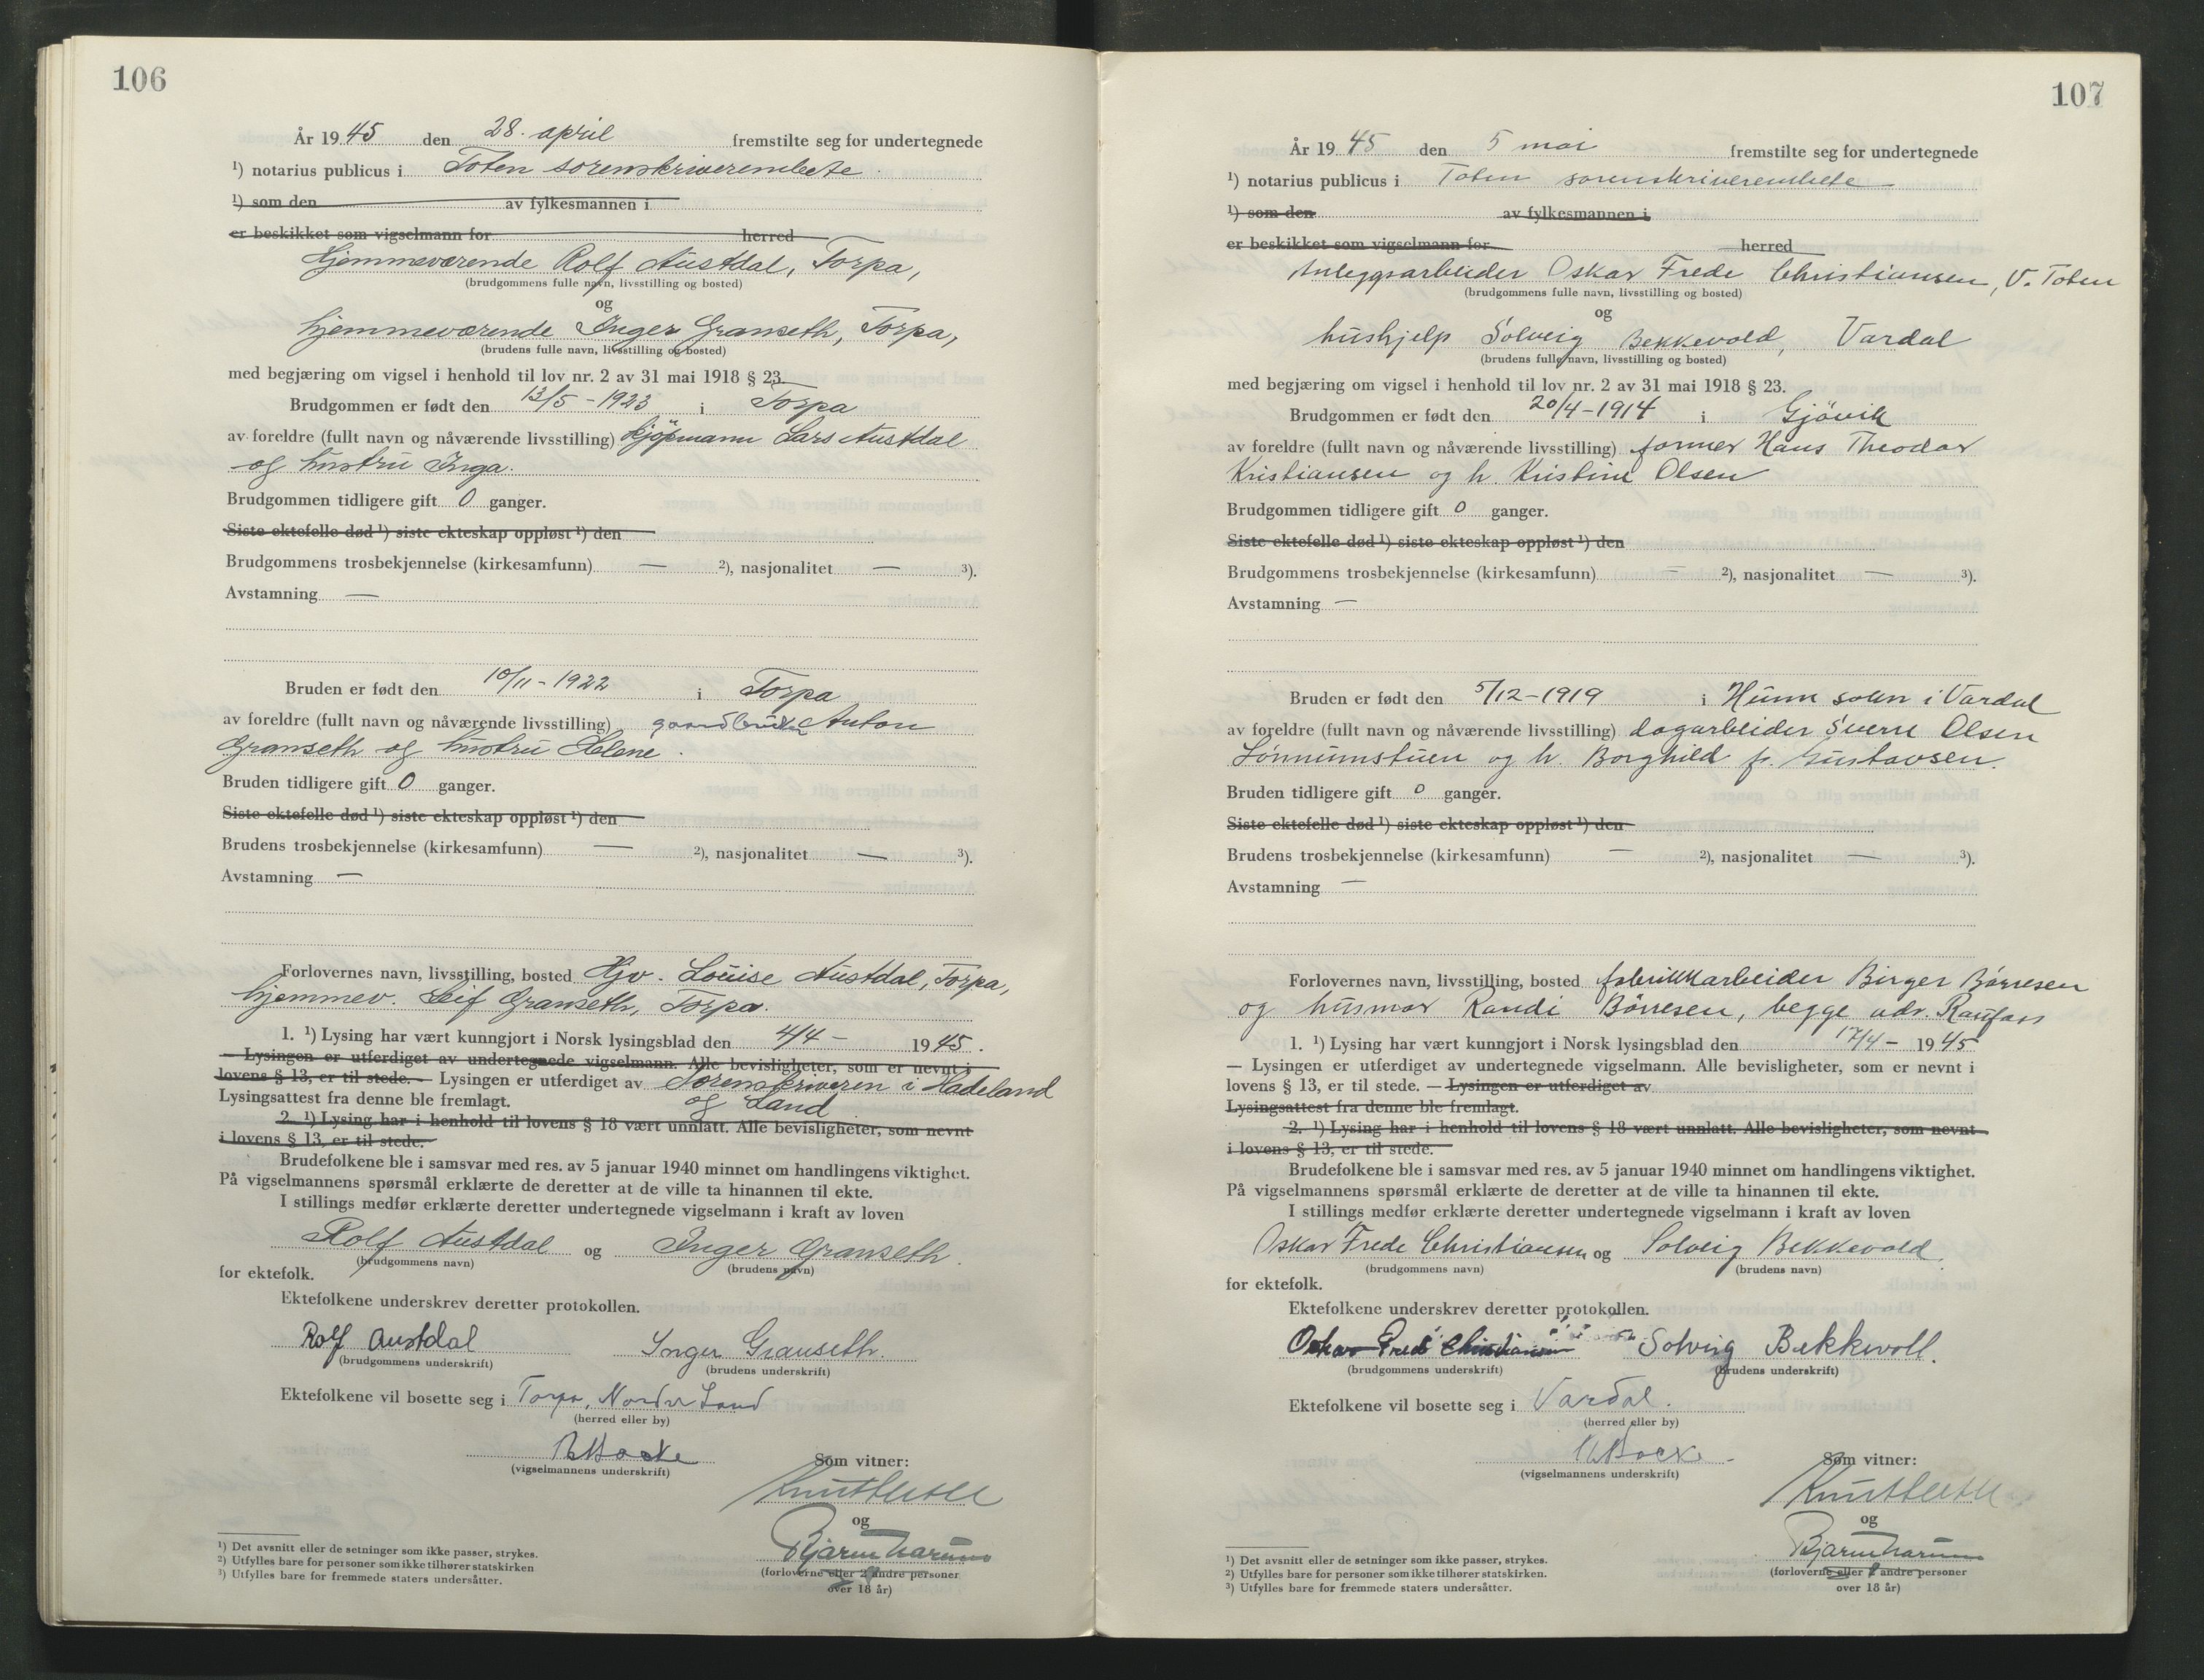 106
År 1945 den 28. april fremstilte seg for undertegnede
¹) notarius publicus i Toten sorenskriverembete.
¹) som den av fylkesmannen i
er beskikket som vigselmann for herred
Hjemmeværende Rolf Austdal, Torpa,
(brudgommens fulle navn, livsstilling og bosted)
og
hjemmeværende Inger Granseth, Torpa,
(brudens fulle navn, livsstilling og bosted)
med begjæring om vigsel i henhold til lov nr. 2 av 31 mai 1918 § 23.
Brudgommen er født den 13/5 - 1923 i Torpa
av foreldre (fullt navn og nåværende livsstilling) kjöpmann Lars Austdal
og hustru Inga.
Brudgommen tidligere gift 0 ganger.
Siste ektefelle død ¹) siste ekteskap oppløst ¹) den
Brudgommens trosbekjennelse (kirkesamfunn) — ²), nasjonalitet — ³).
Avstamning —
Bruden er født den 10/11 - 1922 i Torpa
av foreldre (fullt navn og nåværende livsstilling) gaardbruker Anton
Granseth og hustru Helene.
Bruden tidligere gift 0 ganger.
Siste ektefelle død ¹) siste ekteskap oppløst ¹) den
Brudens trosbekjennelse (kirkesamfunn) — ²), nasjonalitet — ³).
Avstamning —
Forlovernes navn, livsstilling, bosted Hjv. Louise Austdal, Torpa,
hjemmev. Leif Granseth, Torpa.
1. ¹) Lysing har vært kunngjort i Norsk lysingsblad den 4/4 - 1945.
— Lysingen er utferdiget av undertegnede vigselmann. Alle bevisligheter, som er nevnt i
lovens § 13, er til stede. — Lysingen er utferdiget av Sorenskriveren i Hadeland
Lysingsattest fra denne ble fremlagt. og Land
2. ¹) Lysing har i henhold til lovens § 18 vært unnlatt. Alle bevisligheter, som nevnt
i lovens § 13, er til stede.
Brudefolkene ble i samsvar med res. av 5 januar 1940 minnet om handlingens viktighet.
På vigselmannens spørsmål erklærte de deretter at de ville ta hinannen til ekte.
I stillings medfør erklærte deretter undertegnede vigselmann i kraft av loven
Rolf Austdal og Inger Granseth.
(brudgommens navn) (brudens navn)
for ektefolk.
Ektefolkene underskrev deretter protokollen.
Rolf Austdal Inger Granseth.
(brudgommens underskrift) (brudens underskrift)
Ektefolkene vil bosette seg i Torpa, Nordre Land
(herred eller by)
(vigselmannens underskrift)
Som vitner:
og
(forloverne eller 2 andre personer
over 18 år)
¹) Det avsnitt eller de setninger som ikke passer, strykes.
²) Utfylles bare for personer som ikke tilhører statskirken
³) Utfylles bare for fremmede staters undersåtter.
107
År 1945 den 5 mai fremstilte seg for undertegnede
¹) notarius publicus i Toten sorenskriverembete
¹) som den av fylkesmannen i
er beskikket som vigselmann for herred
Anleggsarbeider Oskar Frede Christiansen, V. Toten
(brudgommens fulle navn, livsstilling og bosted)
og
hushjelp Solveig Bekkevold, Vardal
(brudens fulle navn, livsstilling og bosted)
med begjæring om vigsel i henhold til lov nr. 2 av 31 mai 1918 § 23.
Brudgommen er født den 20/4 - 1914 i Gjövik
av foreldre (fullt navn og nåværende livsstilling) former Hans Theodor
Kristiansen og h. Kristine Olsen
Brudgommen tidligere gift 0 ganger.
Siste ektefelle død ¹) siste ekteskap oppløst ¹) den
Brudgommens trosbekjennelse (kirkesamfunn) — ²), nasjonalitet — ³).
Avstamning —
Bruden er født den 5/12 - 1919 i Hunn sokn i Vardal
av foreldre (fullt navn og nåværende livsstilling) dagarbeider Sverre Olsen
Lönnumstuen og h. Borghild f. Gustavsen.
Bruden tidligere gift 0 ganger.
Siste ektefelle død ¹) siste ekteskap oppløst ¹) den
Brudens trosbekjennelse (kirkesamfunn) — ²), nasjonalitet — ³).
Avstamning —
Forlovernes navn, livsstilling, bosted fabrikkarbeider Birger Börresen
og husmor Randi Börresen, begge adr. Raufoss
1. ¹) Lysing har vært kunngjort i Norsk lysingsblad den 17/4 - 1945
— Lysingen er utferdiget av undertegnede vigselmann. Alle bevisligheter, som er nevnt i
lovens § 13, er til stede. — Lysingen er utferdiget av
Lysingsattest fra denne ble fremlagt.
2. ¹) Lysing har i henhold til lovens § 18 vært unnlatt. Alle bevisligheter, som nevnt
i lovens § 13, er til stede.
Brudefolkene ble i samsvar med res. av 5 januar 1940 minnet om handlingens viktighet.
På vigselmannens spørsmål erklærte de deretter at de ville ta hinannen til ekte.
I stillings medfør erklærte deretter undertegnede vigselmann i kraft av loven
Oskar Frede Christiansen og Solveig Bekkevold.
(brudgommens navn) (brudens navn)
for ektefolk.
Ektefolkene underskrev deretter protokollen.
Oskar Frede Christiansen Solveig Bekkevoll.
(brudgommens underskrift) (brudens underskrift)
Ektefolkene vil bosette seg i Vardal.
(herred eller by)
(vigselmannens underskrift)
Som vitner:
og
(forloverne eller 2 andre personer
over 18 år)
¹) Det avsnitt eller de setninger som ikke passer, strykes.
²) Utfylles bare for personer som ikke tilhører statskirken.
³) Utfylles bare for fremmede staters undersåtter.